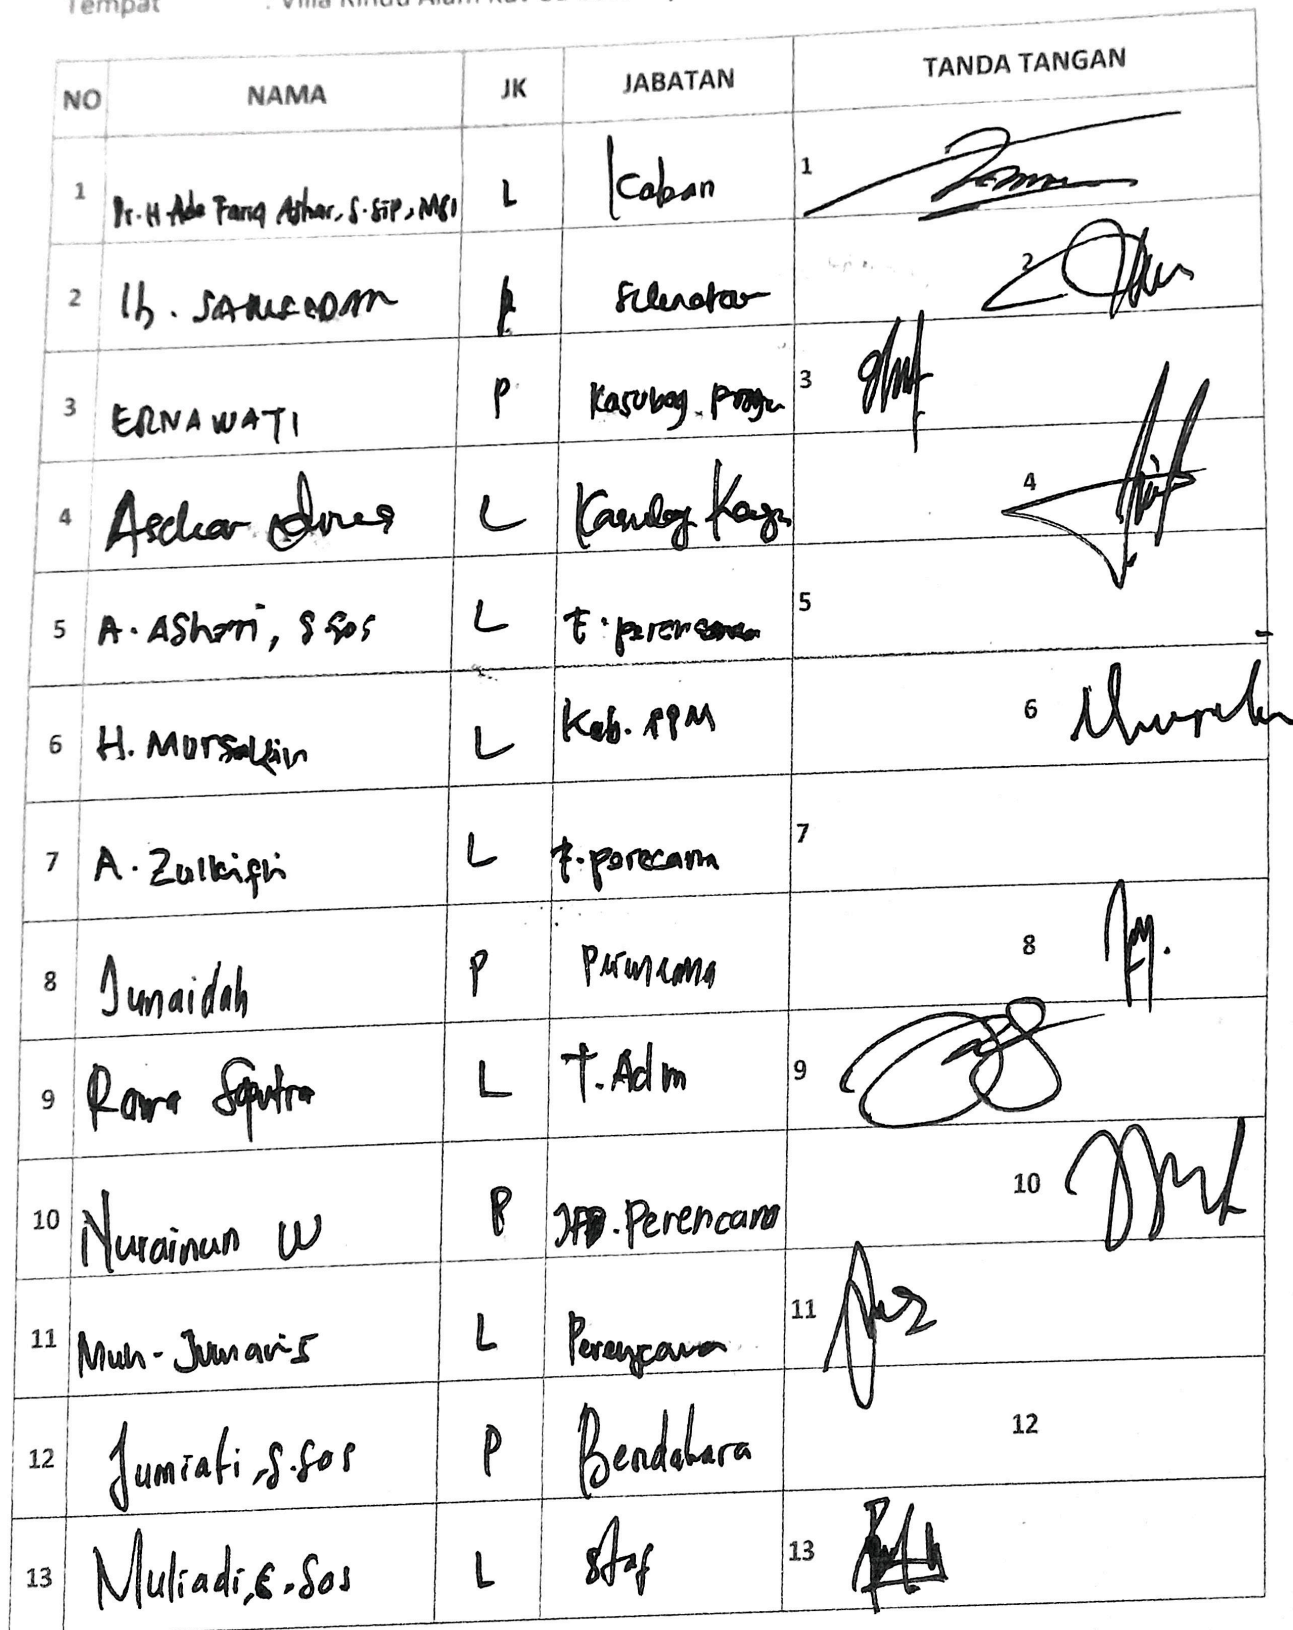 Tempat : Villa Rindu Alam
NO NAMA JK JABATAN TANDA TANGAN
1 Dr. H Ade Fariq Ashar, S.STP, MSi L Kaban 1
2 2
3 ERNAWATI P Kasubag. Progr 3
4 Aschar L Kasubag Keu 4
5 A. AShari, S Sos L F. perencana 5
6 H. Mursalin L Kab. PPM 6
7 A. Zulkifli L F. perecana 7
8 Junaidah P Perencana 8
9 Rama Saputra L T. Adm 9
10 Nurainun W P Perencana 10
11 Muh. Junaris L Perencana 11
12 Jumiati, S.Sos P Bendahara 12
13 Muliadi, S.Sos L Staf 13